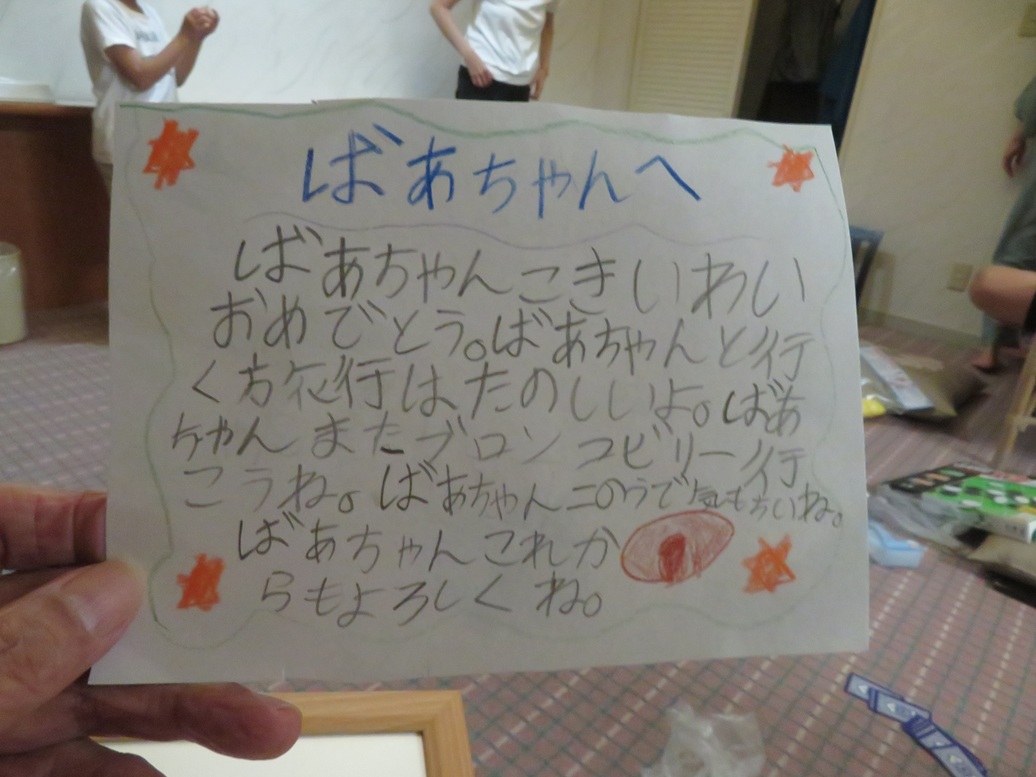 ばあちゃんへ
ばあちゃんこきいわい
おめでとう。ばあちゃんと行
く方行はたのしいよ。ばあ
ちゃんまたブロンコビリー行
こうね。ばあちゃん二のうで気もちいね。
ばあちゃんこれか
らもよろしくね。